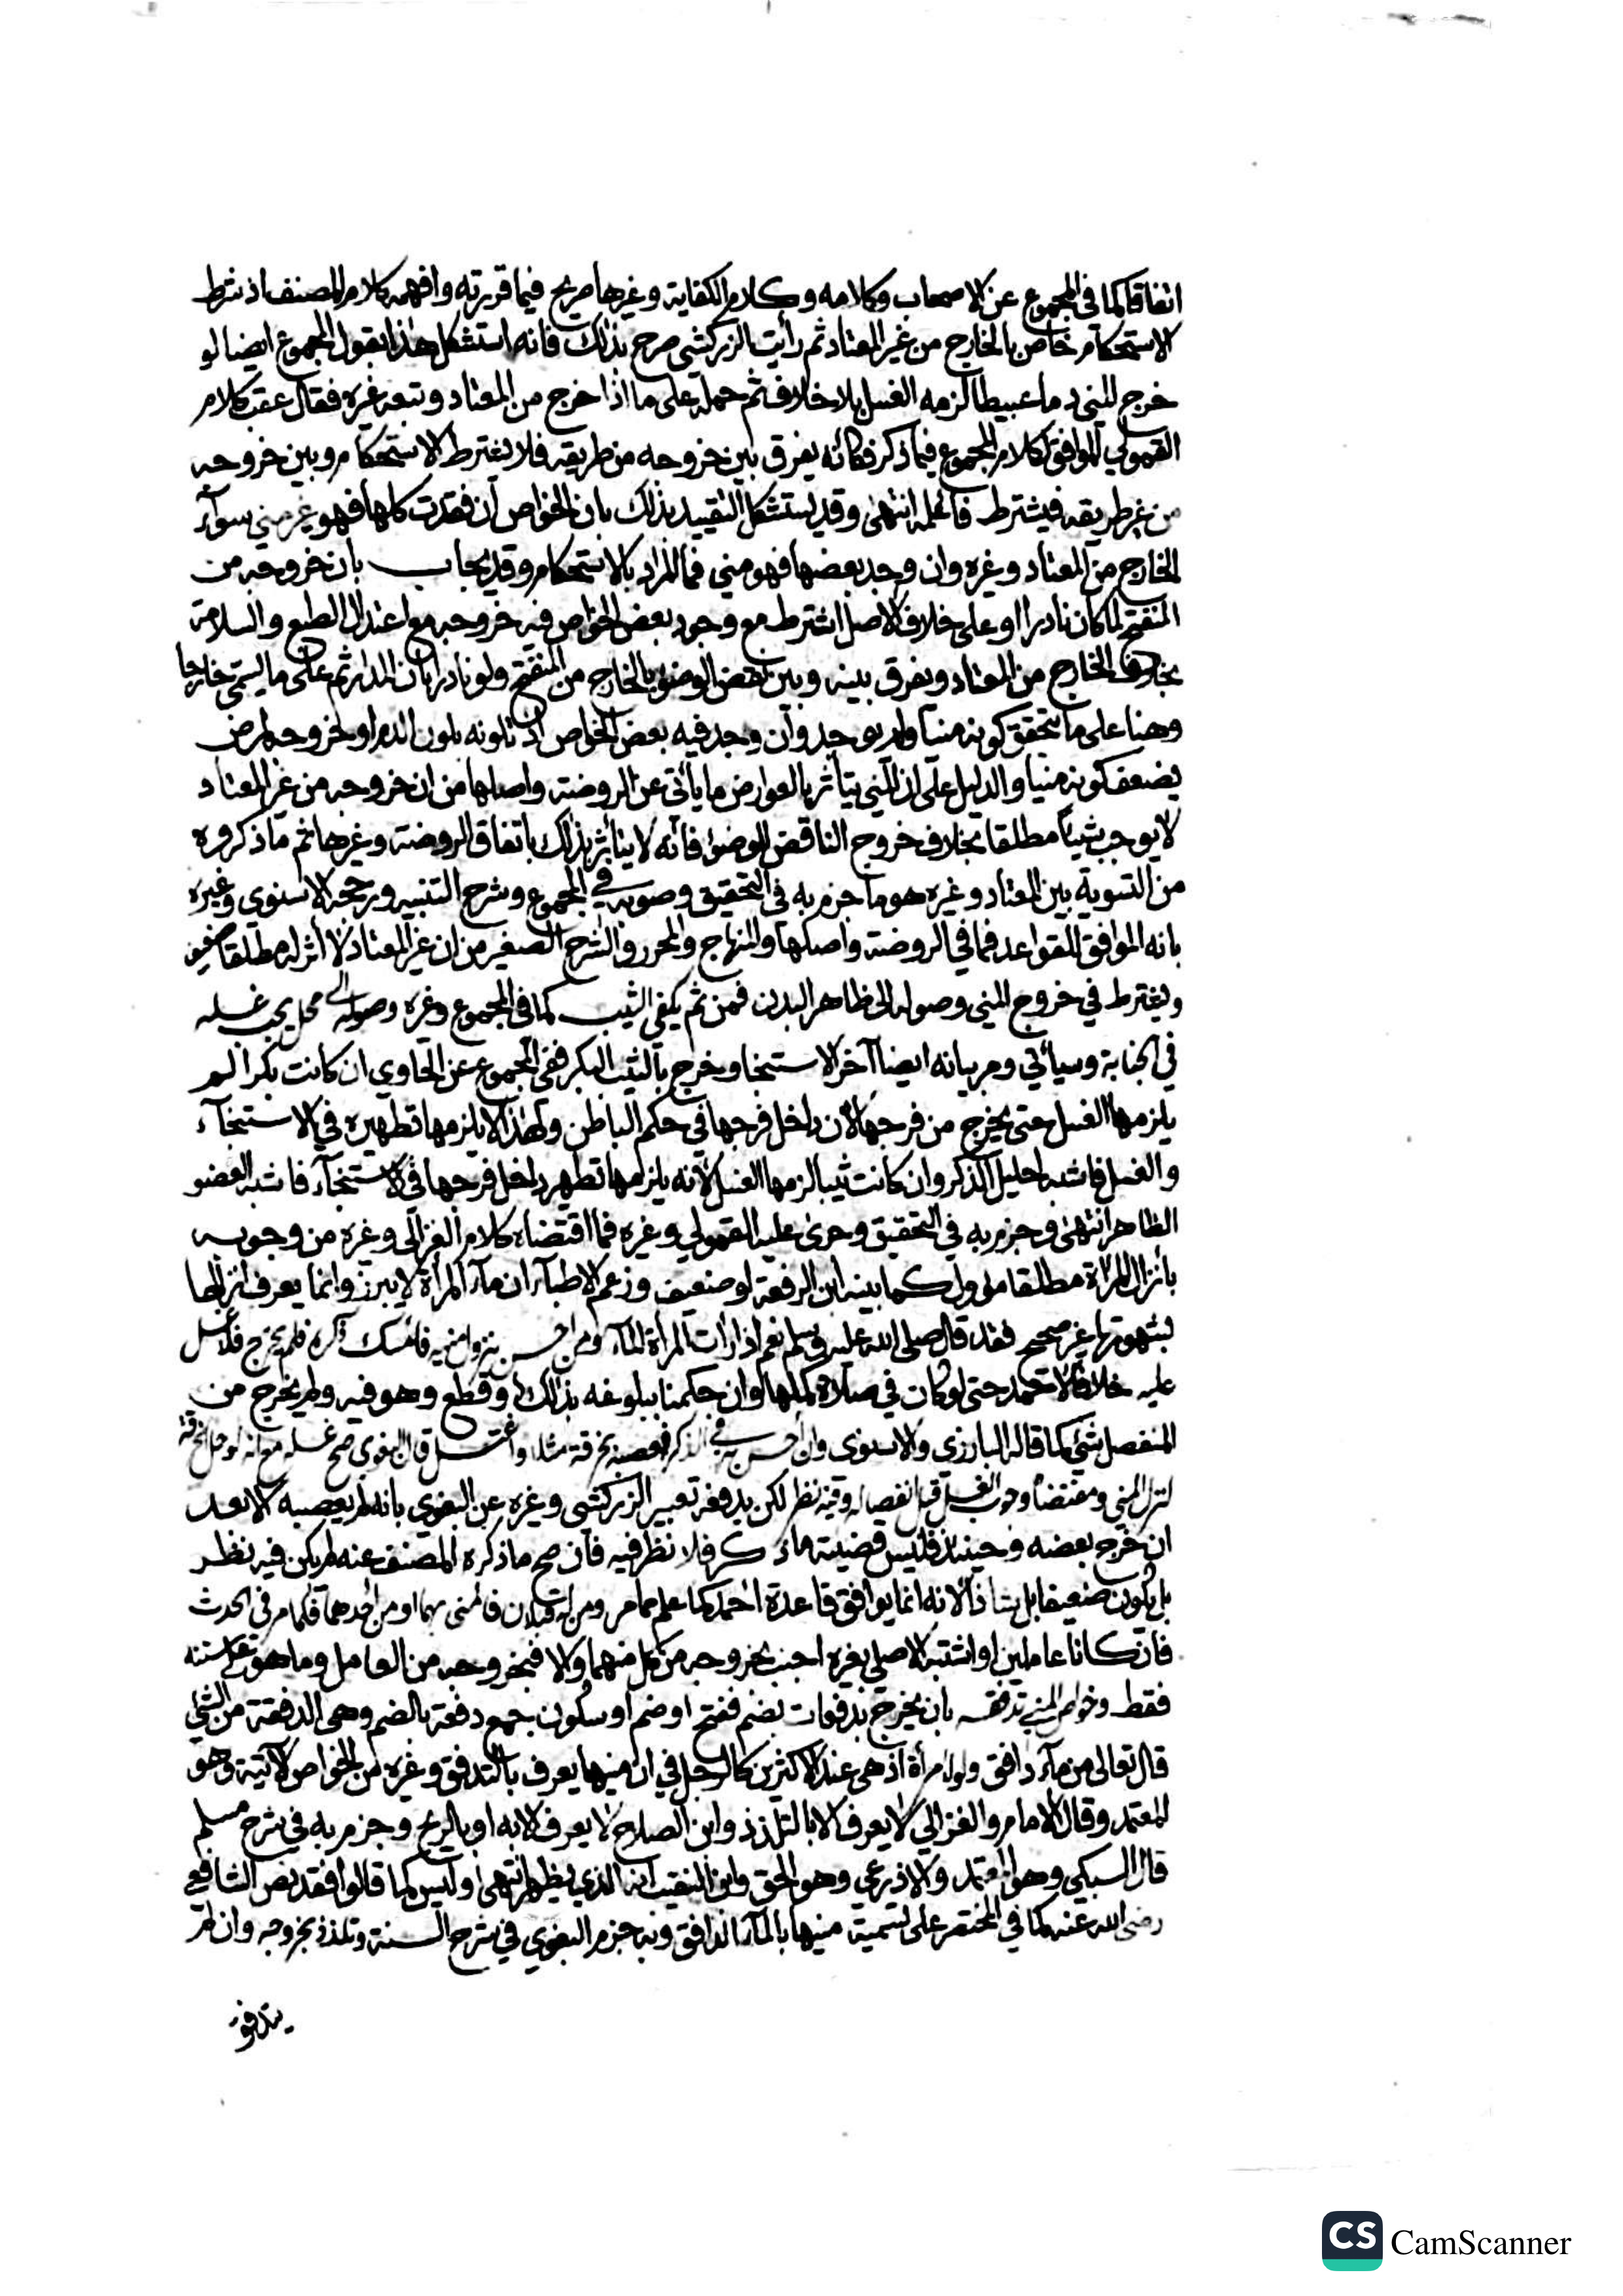 اتفاقا كما في المجموع عن الاصحاب وكلامه وكلام الكفاية وغيرها صريح فيما قررته وافهمه كلام المصنف اذ شرط
الاستحكام خاص بالخارج من غير المعتاد ثم رأيت الزركشي صرح بذلك فانه استشكل هذا بقول المجموع ايضا لو
خرج المني دما عبيطا لزمه الغسل بلا خلاف ثم حمله على ما اذا خرج من المعتاد وتبعه غيره فقال عقب كلام
القمولي الموافق لكلام المجموع فيما ذكر فكأنه يفرق بين خروجه من طريقه فلا يشترط الاستحكام وبين خروجه
من غير طريقه فيشترط فاعلمه انتهى وقد يستشكل التقييد بذلك بان الخواص ان فقدت كلها فهو غير مني سوآء
الخارج من المعتاد وغيره وان وجد بعضها فهو مني فما المراد بالاستحكام وقد يجاب بان خروجه من
المنفتح لما كان نادرا او على خلاف الاصل اشترط مع وجود بعض الخواص فيه خروجه مع اعتدال الطبع والسلامة
بخلاف الخارج من المعتاد ويفرق بينه وبين نقض الوضوء بالخارج من المنفتح ولو نادرا بان المدار ثم على ما يسمى خارجا
وهنا على ما يتحقق كونه منيا ولم يوجد وان وجد فيه بعض الخواص اذ تلونه بلون الدم او خروجه لمرض
يضعف كونه منيا والدليل على ان المني يتأثر بالعوارض ما يأتي عن الروضة واصلها من ان خروجه من غير المعتاد
لا يوجب شيئا مطلقا بخلاف خروج الناقض للوضوء فانه لا يتأثر بذلك باتفاق الروضة وغيرها ثم ما ذكروه
من التسوية بين المعتاد وغيره هو ما جزم به في التحقيق وصوبه في المجموع وشرح التنبيه ورجحه الاسنوي وغيره
بانه الموافق للقواعد فما في الروضة واصلها والمنهاج والمحرر والشرح الصغير من ان غير المعتاد لا أثر له مطلقا ضعيف
ويشترط في خروج المني وصوله الى ظاهر البدن فمن ثم يكفي الثيب كما في المجموع وغيره وصوله الى محل يجب غسله
في الجنابة وسيأتي ومر بيانه ايضا آخر الاستنجا وخرج بالثيب البكر ففي المجموع عن الحاوي ان كانت بكرا لم
يلزمها الغسل حتى يخرج من فرجها لأن داخل فرجها في حكم الباطن ولهذا لا يلزمها تطهيره في الاستنجآء
والغسل فاشبه احليل الذكر وان كانت ثيبا لزمها الغسل لأنه يلزمها تطهير داخل فرجها في الاستنجآء فاشبه العضو
الظاهر انتهى وجزم به في التحقيق وجرى عليه القمولي وغيره فما اقتضاه كلام الغزالي وغيره من وجوبه
بانزال المرأة مطلقا مؤول كما بينه ابن الرفعة او ضعيف وزعم الاطبآء ان مآء المرأة لا يبرز وانما يعرف انزالها
بشهوتها غير صحيح فقد قال صلى الله عليه وسلم نعم اذا رأت المرأة المآء ومن احس بنزول منيه فامسك ذكره فلم يخرج فلا غسل
عليه خلافا لاحمد حتى لو كان في صلاة كملها وان حكمنا ببلوغه بذلك او قطع وهو فيه ولم يخرج من
المنفصل شيء كما قاله البارزي والاسنوى وان احس به في الذكر فعصبه بخرقة مثلا واغتسل قال البغوى صح غسله مع انه لو حل الخرقة
لنزل المني ومقتضاه وجوب الغسل قبل انفصاله وفيه نظر لكن يدفعه تعبير الزركشى وغيره عن البغوي بانه لم يعصبه الا بعد
ان خرج بعضه وحينئذ فليس قضيته ما ذكر فلا نظر فيه فان صح ما ذكره المصنف عنه لم يكن فيه نظر
بل يكون ضعيفا بل شاذا لانه انما يوافق قاعدة احمد كما علم مما مر ومن له قبلان فامنى بهما او من احدهما فكما مر في الحدث
فان كانا عاملين او اشتبه الاصلي بغيره اجنب بخروجه من كل منهما والا فبخروجه من العامل وما هو على سننه
فقط وخواص المني تدفقه بان يخرج بدفعات بضم ففتح او ضم او سكون جمع دفعة بالضم وهي الدفقة من الشيء
قال تعالى من مآء دافق ولو امرأة اذ هي عند الاكثرين كالرجل في ان منيها يعرف بالتدفق وغيره من الخواص الآتية وهو
المعتمد وقال الامام والغزالي لا يعرف الا بالتلذذ وابن الصلاح لا يعرف الا به او بالريح وجزم به في شرح مسلم
قال السبكي وهو المعتمد والاذرعي وهو الحق وابن النقيب انه الذي يظهر انتهى وليس كما قالوا فقد نص الشافعي
رضى الله عنه كما في المختصر على تسمية منيها بالمآء الدافق وبه جزم البغوي في شرح السنة وتلذذ بخروجه وان لم
يتدفق
CS CamScanner